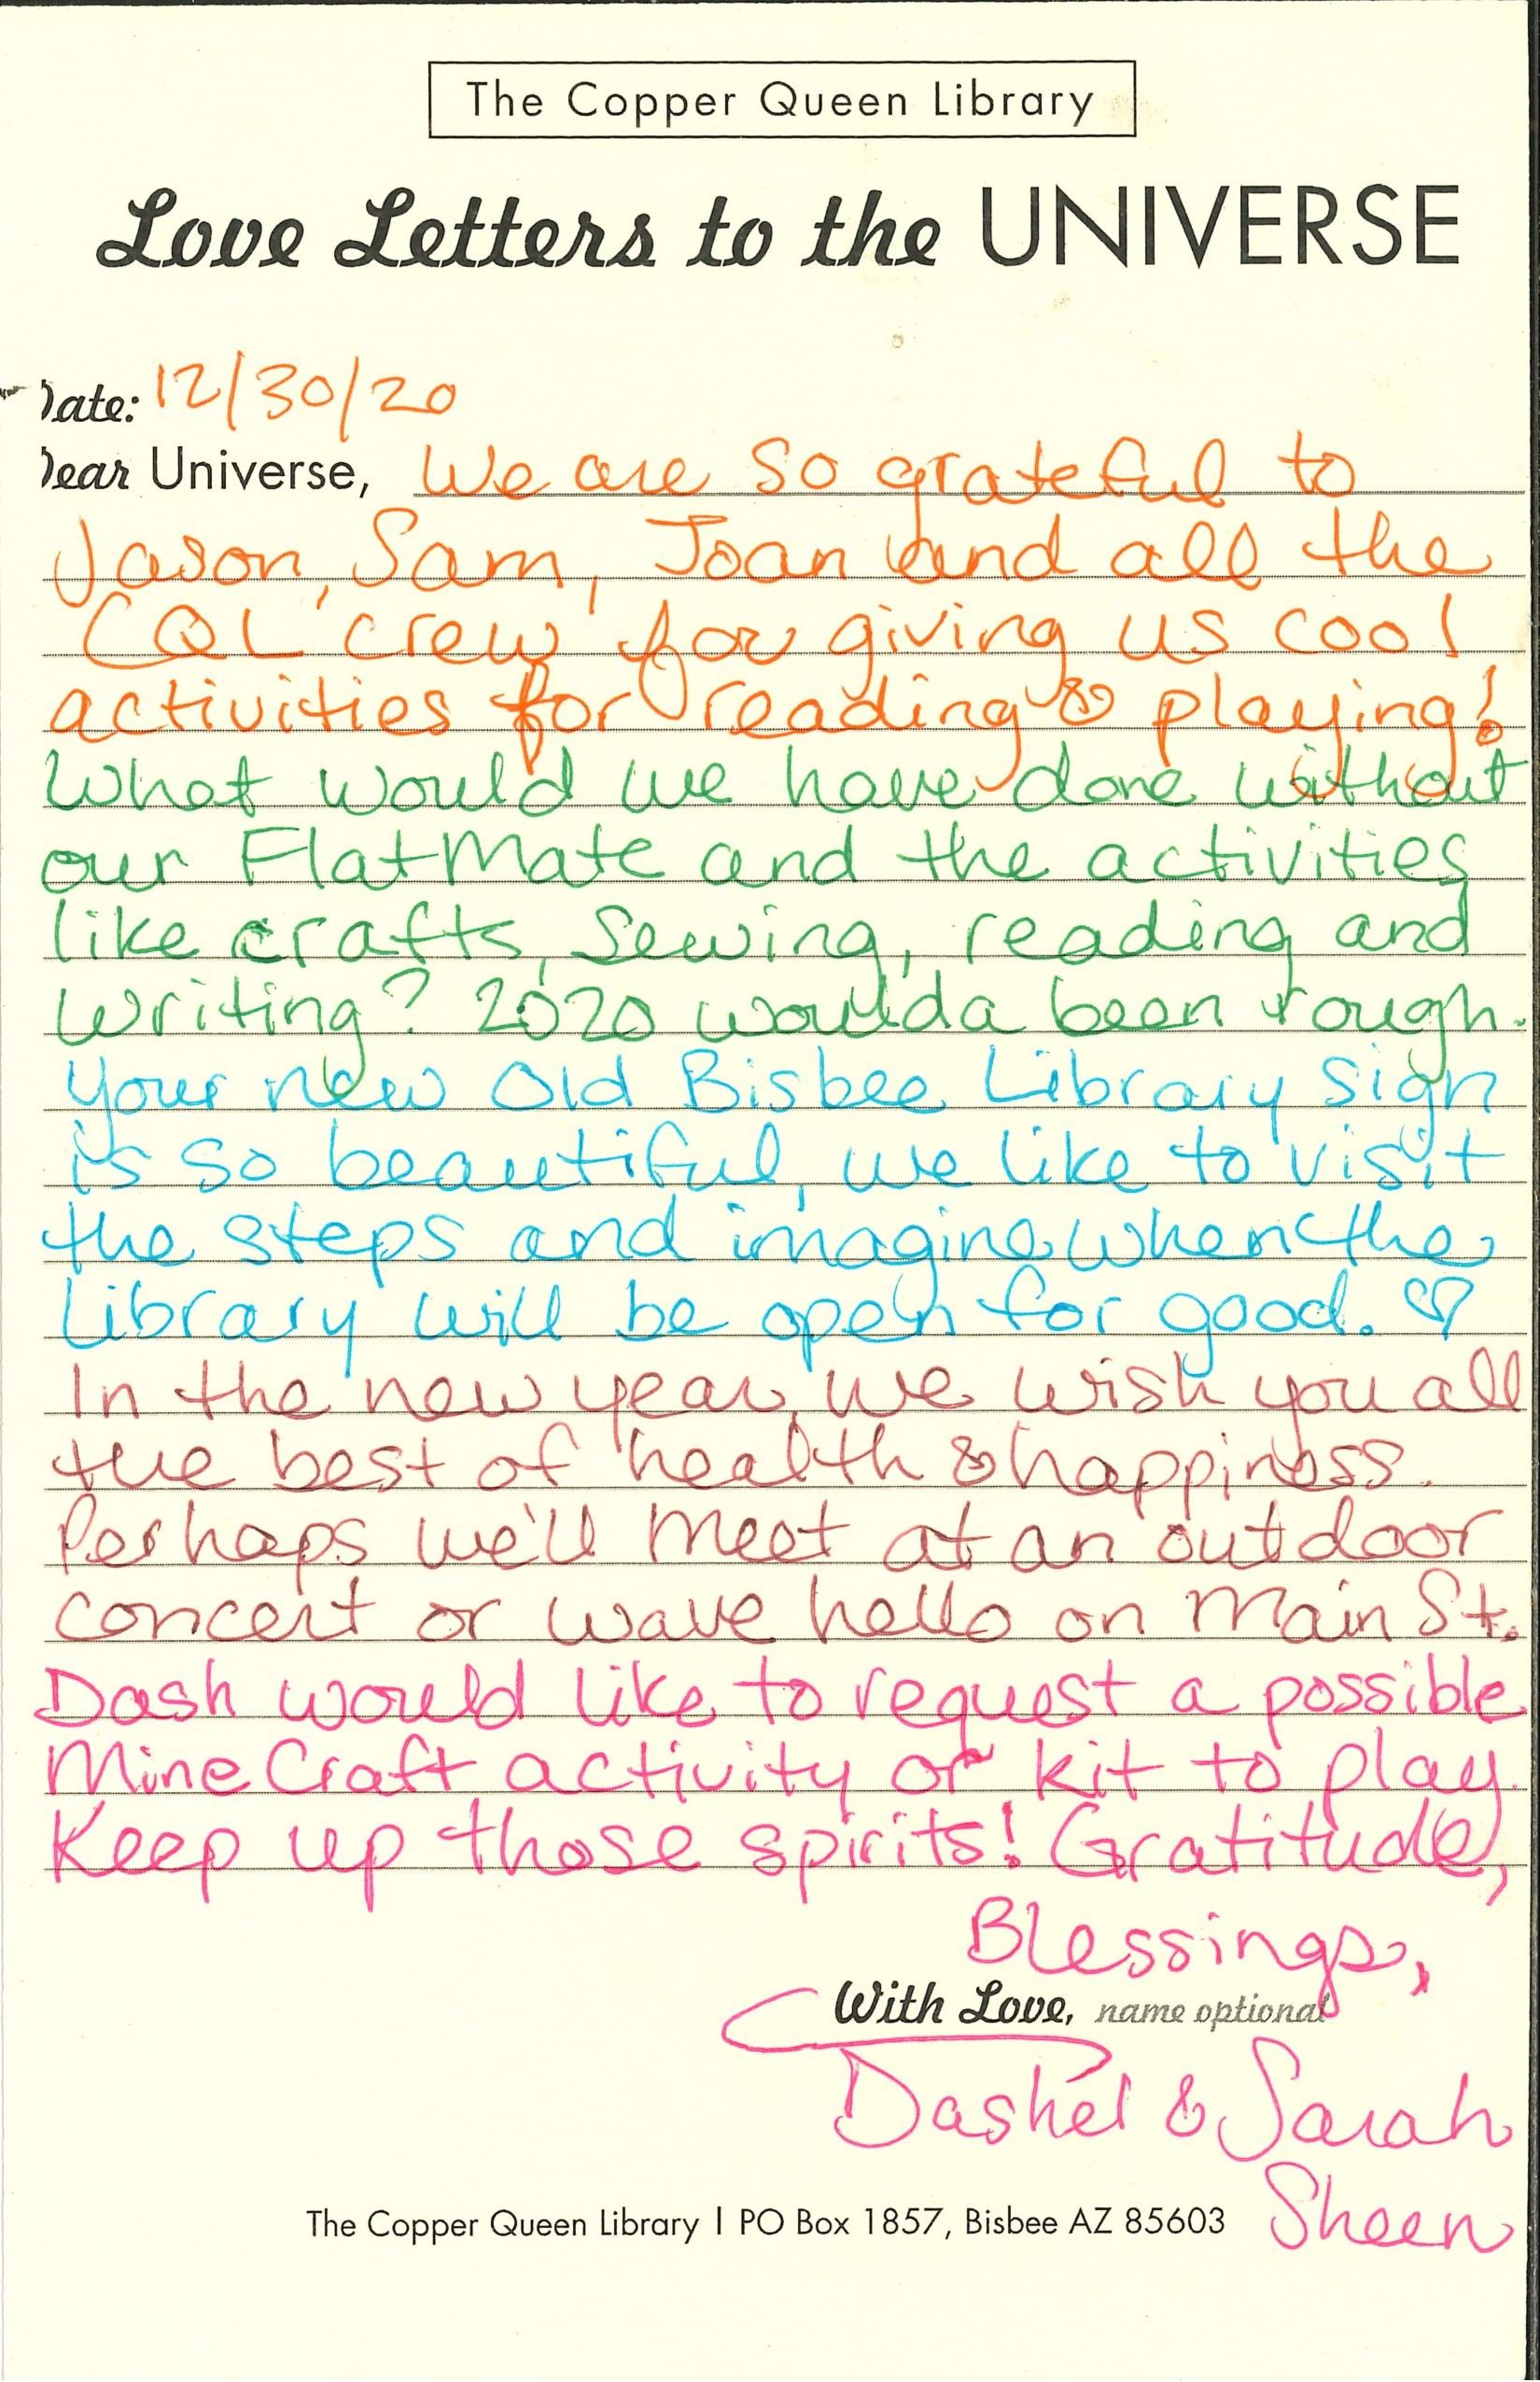 The Copper Queen Library
Love Letters to the UNIVERSE
Date: 12/30/20
Dear Universe, We are so grateful to
Jason, Sam, Joan and all the
CQL crew for giving us cool
activities for reading & playing!
What would we have done without
our FlatMate and the activities
like crafts, sewing, reading and
writing? 2020 woulda been rough.
Your new Old Bisbee Library sign
is so beautiful, we like to visit
the steps and imagine when the
Library will be open for good. ♡
In the new year, we wish you all
the best of health & happiness.
Perhaps we'll meet at an outdoor
concert or wave hello on Main St.
Dash would like to request a possible
MineCraft activity or kit to play.
Keep up those spirits! Gratitude,
Blessings,
With Love, name optional
Dashel & Sarah
Sheen
The Copper Queen Library | PO Box 1857, Bisbee AZ 85603